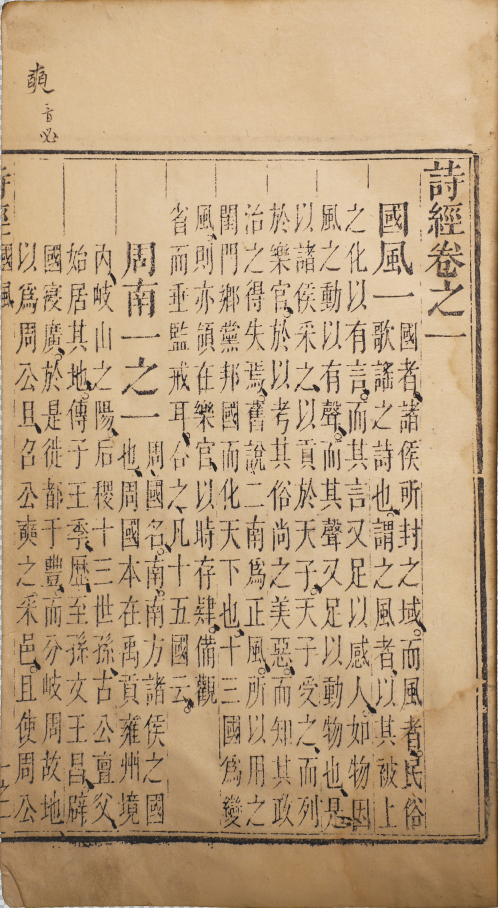 奭
音必
詩經卷之一
國風一
國者、諸侯所封之域。而風者、民俗
歌謠之詩也。謂之風者、以其被上
之化以有言。而其言又足以感人、如物因
風之動以有聲。而其聲又足以動物也。是
以諸侯采之、以貢於天子。天子受之、而列
於樂官。於以考其俗尚之美惡。而知其政
治之得失焉。舊說二南爲正風。所以用之
閨門鄉黨邦國而化天下也。十三國爲變
風、則亦領在樂官、以時存肄。備觀
省而垂監戒耳。合之、凡十五國云。
周南一之一
周國名。南、南方諸侯之國
也、周國本在禹貢雍州境
內、岐山之陽、后稷十三世孫、古公亶父、
始居其地。傳子王季歷、至孫文王昌、辟
國寖廣、於是徙都于豐、而分岐周故地
以爲周公旦、召公奭之采邑。且使周公
詩經國風